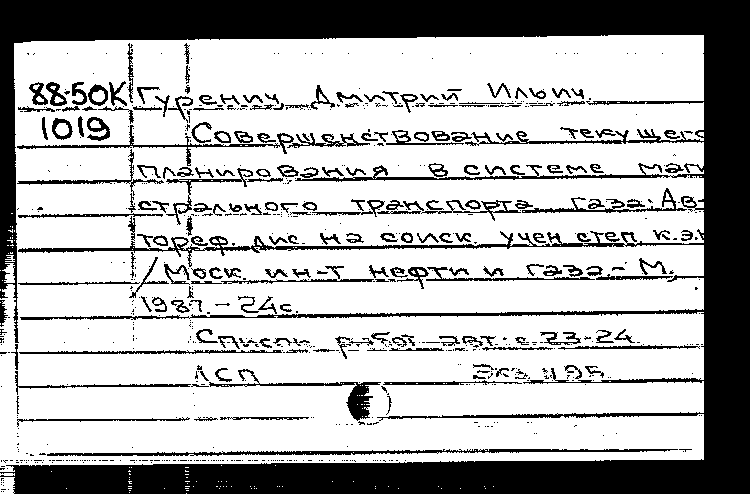 88-50К Гуренич, Дмитрий Ильич.
1019 Совершенствование текущего
планирования в системе маги
стрального транспорта газа: Ав-
тореф. дис. на соиск. учен степ. к.э.н
/ Моск. ин-т нефти и газа.- М.,
1987. - 24с.
Список работ авт.: с. 23-24
ЛСП Экз